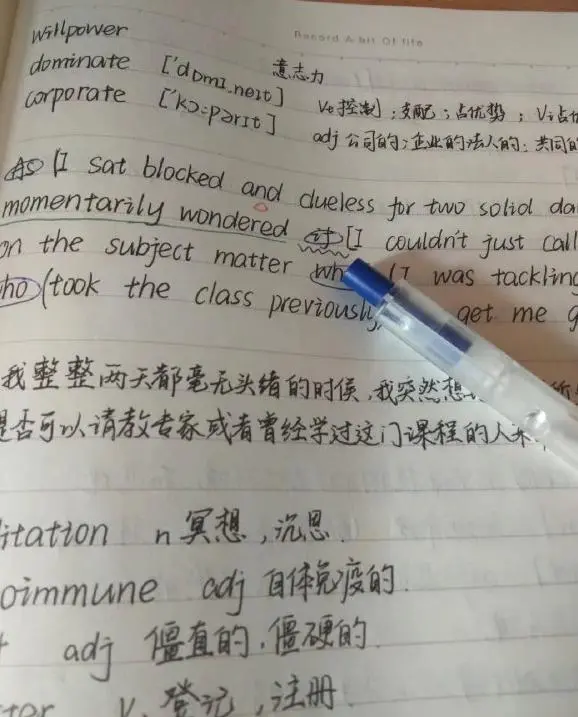 Record A bit Of life
willpower 意志力
dominate ['dɒmɪ.neɪt] v. 控制;支配;占优势;vi占
corporate ['kɔ:pərɪt] adj 公司的;企业的法人的;共同的
As (I sat blocked and clueless for two solid da
momentarily wondered if (I couldn't just call
on the subject matter (I was tackling
ho (took the class previously get me g
我整整两天都毫无头绪的时候,我突然想
是否可以请教专家或者曾经学过这门课程的人来
itation n 冥想,沉思.
oimmune adj 自体免疫的.
adj 僵直的,僵硬的
ter v. 登记,注册.